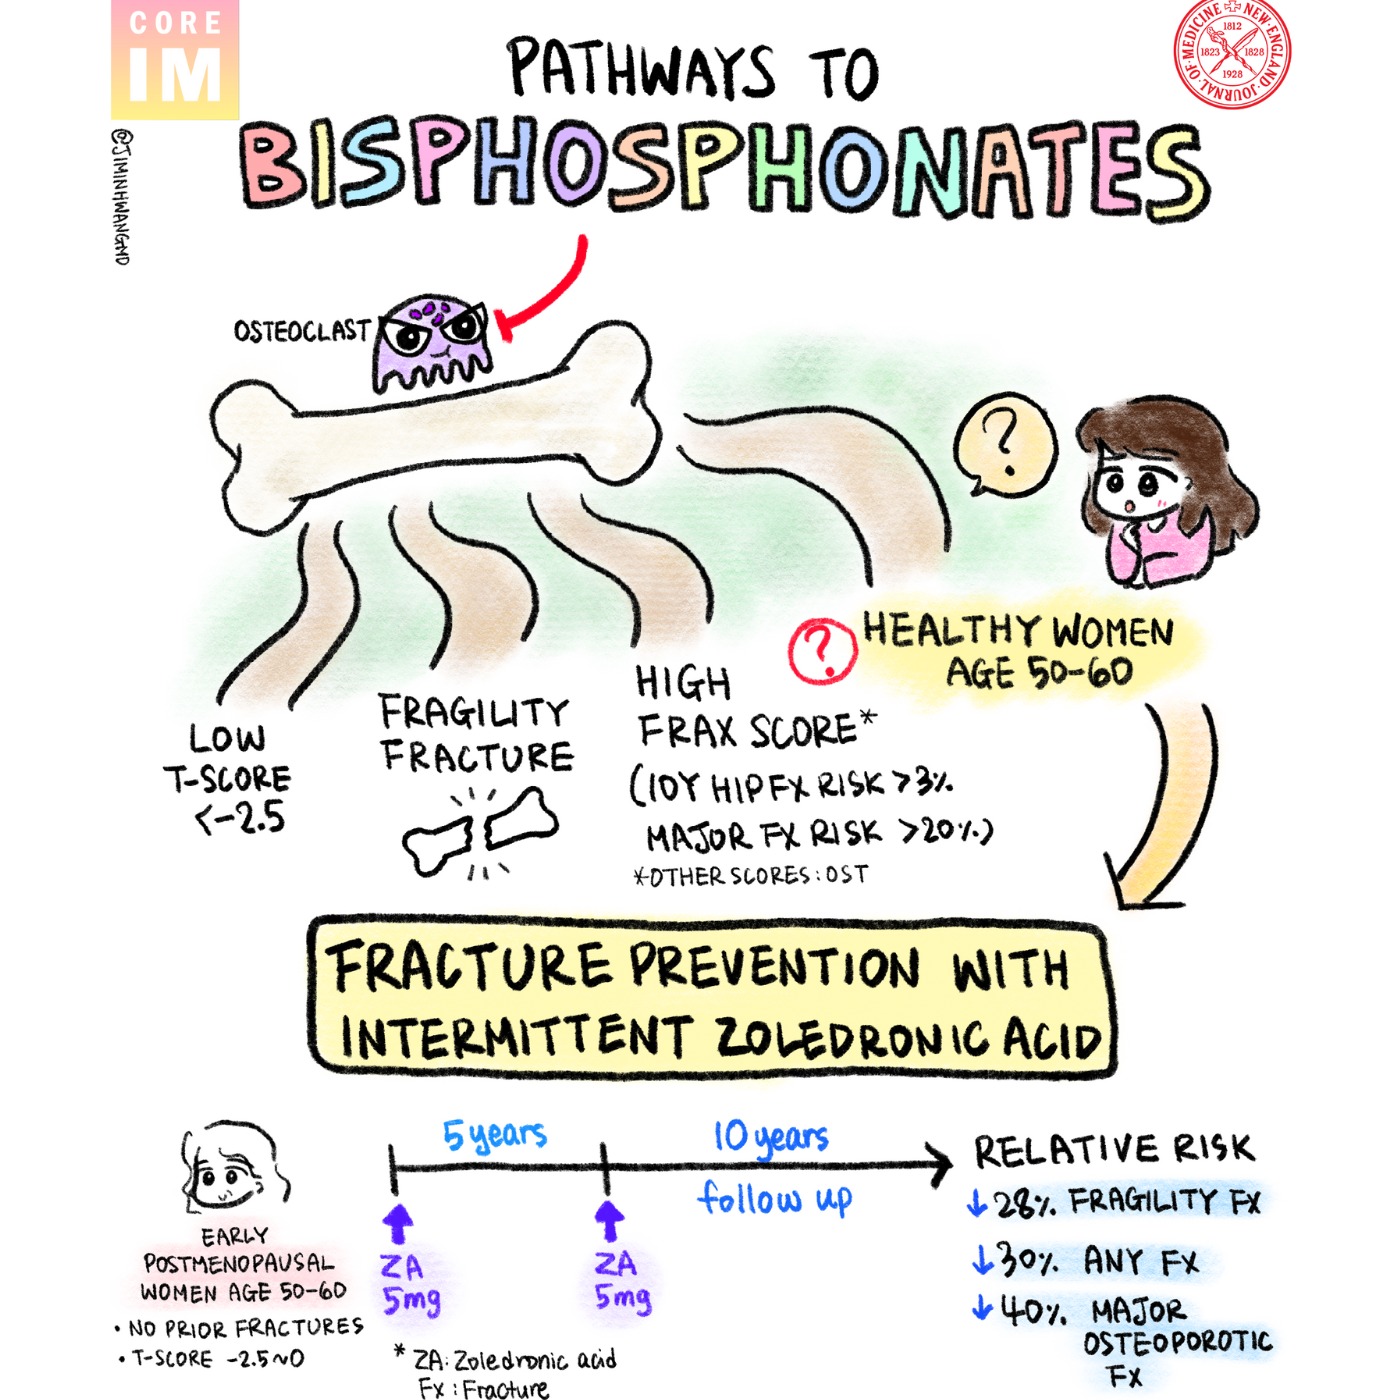 CORE
IM
@JIMINHWANGMD
NEW ENGLAND JOURNAL OF MEDICINE
1812
1823
1828
1928
PATHWAYS TO
BISPHOSPHONATES
OSTEOCLAST
?
?
HEALTHY WOMEN
AGE 50-60
LOW
T-SCORE
<-2.5
FRAGILITY
FRACTURE
HIGH
FRAX SCORE*
(10Y HIP FX RISK >3%
MAJOR FX RISK >20%)
*OTHER SCORES: OST
FRACTURE PREVENTION WITH
INTERMITTENT ZOLEDRONIC ACID
EARLY
POSTMENOPAUSAL
WOMEN AGE 50-60
• NO PRIOR FRACTURES
• T-SCORE -2.5~0
5 years
10 years
follow up
ZA
5mg
ZA
5mg
* ZA: Zoledronic acid
Fx: Fracture
RELATIVE RISK
↓ 28% FRAGILITY FX
↓ 30% ANY FX
↓ 40% MAJOR
OSTEOPOROTIC
FX